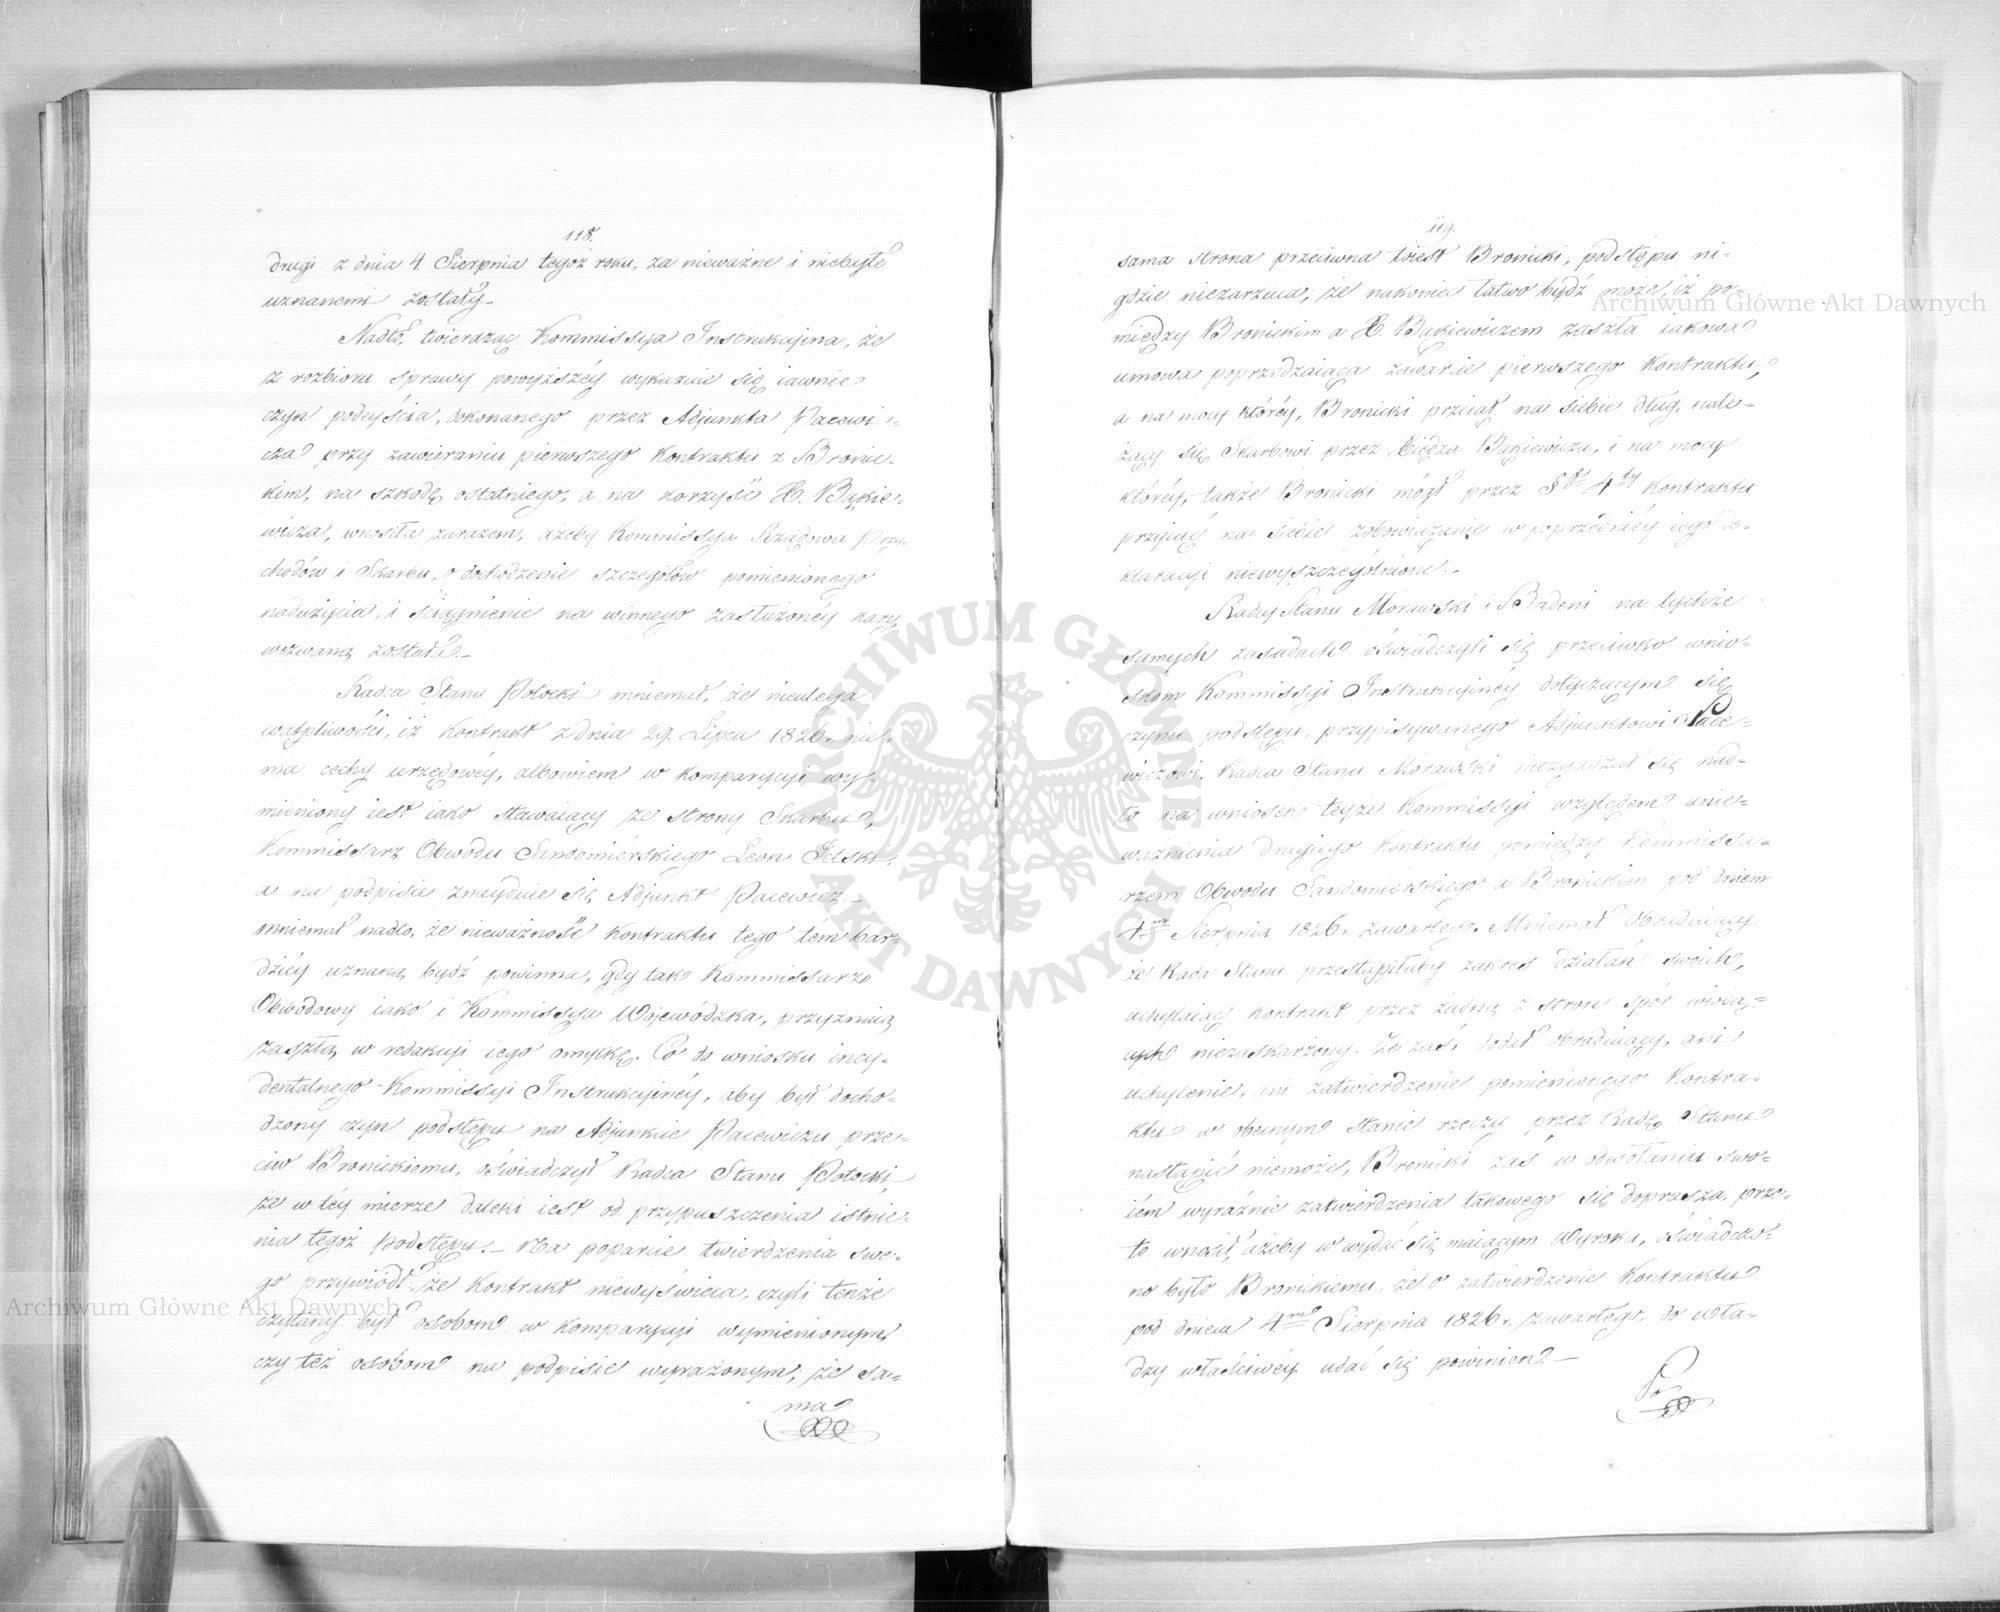 118.
drugi z dnia 4. Sierpnia tegoż roku, za nieważne i niebyłe
uznanemi zostały.–
Nadto, twierdząc Kommissya Instrukcyina, że
z rozbioru sprawy powyższéy wykazuie się iawnie
czyn podeyścia, dokonanego przez Adjunkta Pacewi-
cza przy zawieraniu pierwszego Kontraktu z Bronic-
kim, na szkodę ostatniego, a na korzyść X. Bąkie-
wicza, wnosiła zarazem, ażeby Kommissya Rządowa Przy-
chodów i Skarbu, o dochodzenie szczegółów pomienionego
nadużycia, i ściągnienie na winnego zasłużonéy kary,
wezwaną została.–
Radca Stanu Potocki mniemał, że nieulega
wątpliwości, iż Kontrakt z dnia 29. Lipca 1826 r. nie-
ma cechy urzędowéy, albowiem w komparycyi wy-
mieniony iest iako stawaiący ze strony Skarbu,
Kommissarz Obwodu Sandomierskiego Leon Jelski,
a na podpisie znayduie się Adjunkt Pacewicz.–
mniemał nadto, że nieważność Kontraktu tego tém bar-
dziéy uznaną bydź powinna, gdy tak Kommissarz
Obwodowy iako i Kommissya Wojewódzka, przyznaią
zaszłą w redakcyi iego omyłkę. Co do wniosku incy-
dentalnego Kommissyi Instrukcyinéy, aby był docho-
dzony czyn podstępu na Adjunkcie Pacewiczu prze-
ciw Bronickiemu, oświadczył Radca Stanu Potocki,
że w téy mierze daleki iest od przypuszczenia istnie-
nia tegoż podstępu.– Na poparcie twierdzenia swe-
go przywiódł: że Kontrakt niewyświeca, czyli tenże
czytany był osobom w komparycyi wymienionym,
czy też osobom na podpisie wyrażonym; że sa-
ma
119.
sama strona przeciwna to iest Bronicki, podstępu ni-
gdzie niezarzuca; że nakoniec łatwo bydź może, iż po-
między Bronickim a X. Bąkiewiczem zaszła iakowa
umowa poprzedzaiąca zawarcie pierwszego Kontraktu,
a na mocy któréy, Bronicki przeiął na siebie dług, nale-
żący się Skarbowi przez Xiędza Bąkiewicza, i na mocy
któréy, także Bronicki mógł przez § 4ty Kontraktu
przyiąć na siebie zobowiązanie w poprzedniéy iego de-
klaracyi niewyszczególnione.–
Radcy Stanu Morawski i Badeni na tychże
samych zasadach oświadczyli się przeciwko wnio-
skom Kommissyi Instrukcyinéy dotyczącym się
czynu podstępu, przypisywanego Adjunktowi Pace-
wiczowi. Radca Stanu Morawski niezgadzał się nad-
to na wniosek teyże Kommissyi względem unie-
ważnienia drugiego Kontraktu pomiędzy Kommissa-
rzem Obwodu Sandomierskiego a Bronickim pod dniem
4m Sierpnia 1826 r. zawartego. Mniemał Obraduiący:
że Rada Stanu przestąpiłaby zakres działań swoich,
uchylaiąc Kontrakt przez żadną z stron spór wiodą-
cych niezaskarżony. Że zaś, dodał Obraduiący, ani
uchylenie, ani zatwierdzenie pomienionego Kontra-
ktu w obecnym stanie rzeczy przez Radę Stanu
nastąpić niemoże, Bronicki zaś w odwołaniu swo-
iém wyraźnie zatwierdzenia takowego się doprasza, prze-
to wnosił, ażeby w wydać się maiącym Wyroku, oświadczo-
no było Bronickiemu, że o zatwierdzenie Kontraktu
pod dniem 4m Sierpnia 1826 r. zawartego, do wła-
dzy właściwéy udać się powinien.–
Po
Archiwum Główne Akt Dawnych
Archiwum Główne Akt Dawnych
ARCHIWUM GŁÓWNE AKT DAWNYCH